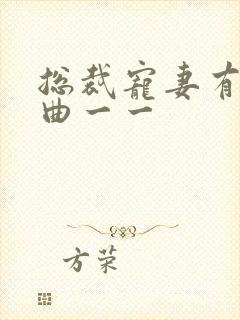 总裁宠妻有
曲一一
方荣